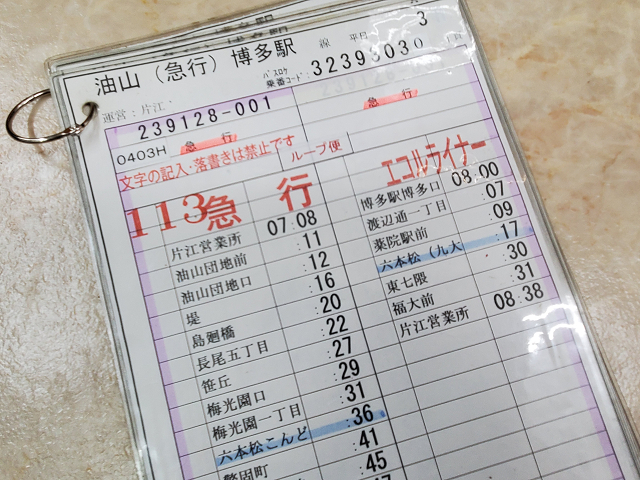 油山（急行）博多駅
線 平日 3
運営：片江
バスロケ
乗番コード：32393030
239128-001
0403H 急行
急行
文字の記入・落書きは禁止です
ループ便
113急行
エコルライナー
片江営業所 07:08
油山団地前 :11
油山団地口 :12
堤 :16
島廻橋 :20
長尾五丁目 :22
笹丘 :27
梅光園口 :29
梅光園一丁目 :31
六本松こんど :36
警固町 :41
:45
博多駅博多口 08:00
渡辺通一丁目 :07
薬院駅前 :09
六本松（九大 :17
東七隈 :30
福大前 :31
片江営業所 08:38